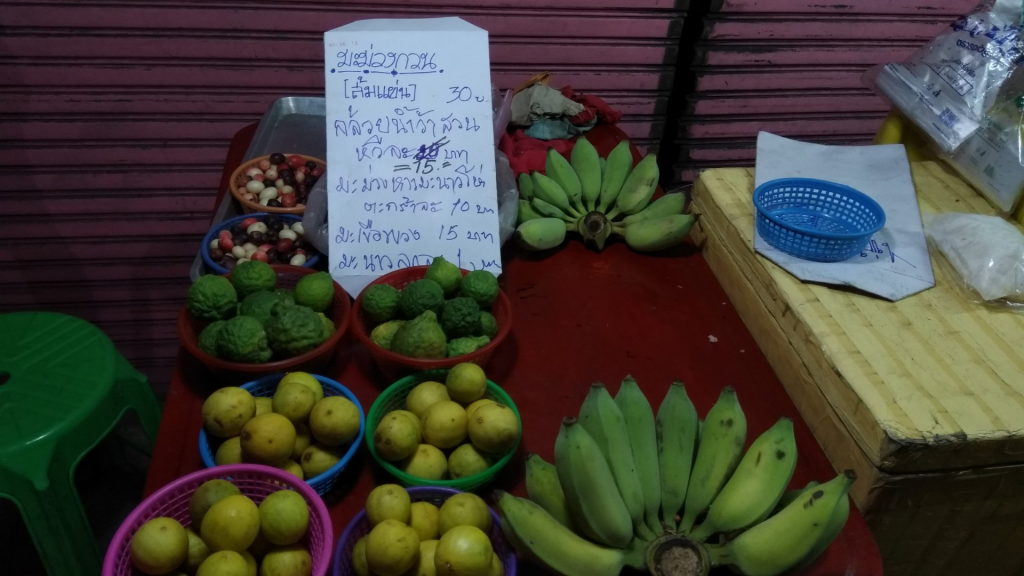 มะม่วงกวน
[ส้มแผ่น] 30 บ.
กล้วยน้ำว้าสวน
หวีละ 15 บาท
มะม่วงหาวมะนาวโห่
ตะกร้าละ 10 บาท
มะเขือพวง 15 บาท
มะนาว